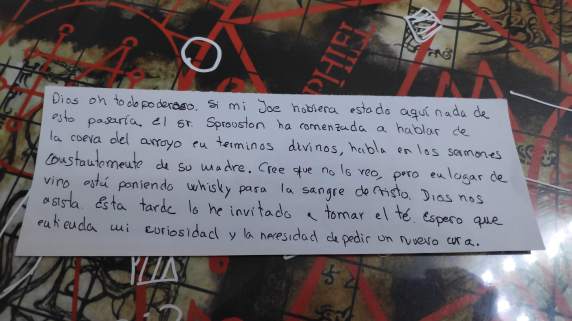 Dios oh todopoderoso. Si mi Joe hobiera estado aquí nada de
esto pasaría. el sr. Sprouston ha comenzado a hablar de
la cueva del arroyo en terminos divinos, habla en los sermones
constantemente de su madre. Cree que no lo veo, pero en lugar de
vino está poniendo whisky para la sangre de cristo. Dios nos
asista. Esta tarde lo he invitado a tomar el té. espero que
entienda mi curiosidad y la necesidad de pedir un nuevo cura.